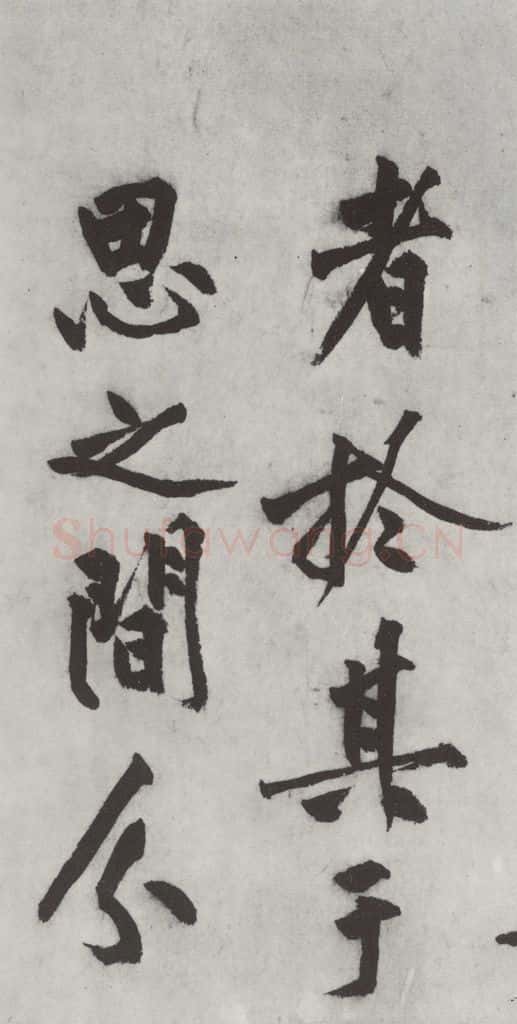 者於其于
思之間分
Shufawang.CN